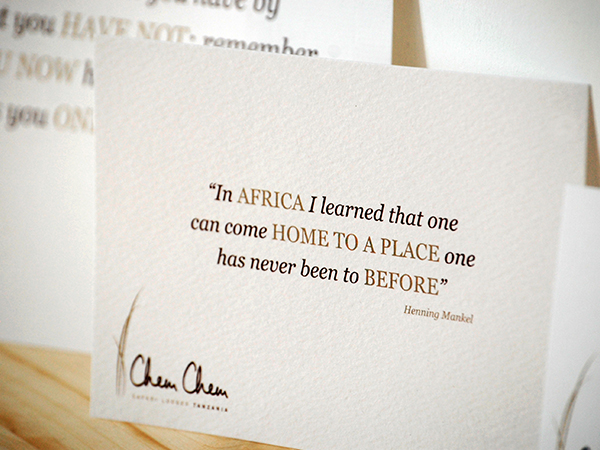 you have by
t you HAVE NOT; remember
U NOW h
s you ON
“In AFRICA I learned that one
can come HOME TO A PLACE one
has never been to BEFORE”
Henning Mankel
Chem Chem
SAFARI LODGE TANZANIA